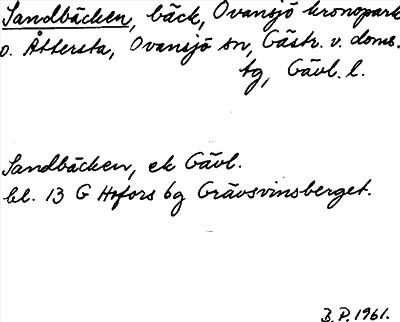 Sandbäcken, bäck, Ovansjö kronopark
o. Åttersta, Ovansjö sn, Gästr. v. doms.
tg, Gävl. l.
Sandbäcken, ek Gävl.
bl. 13 G Hofors bg Grävsvinsberget.
B.P. 1961.